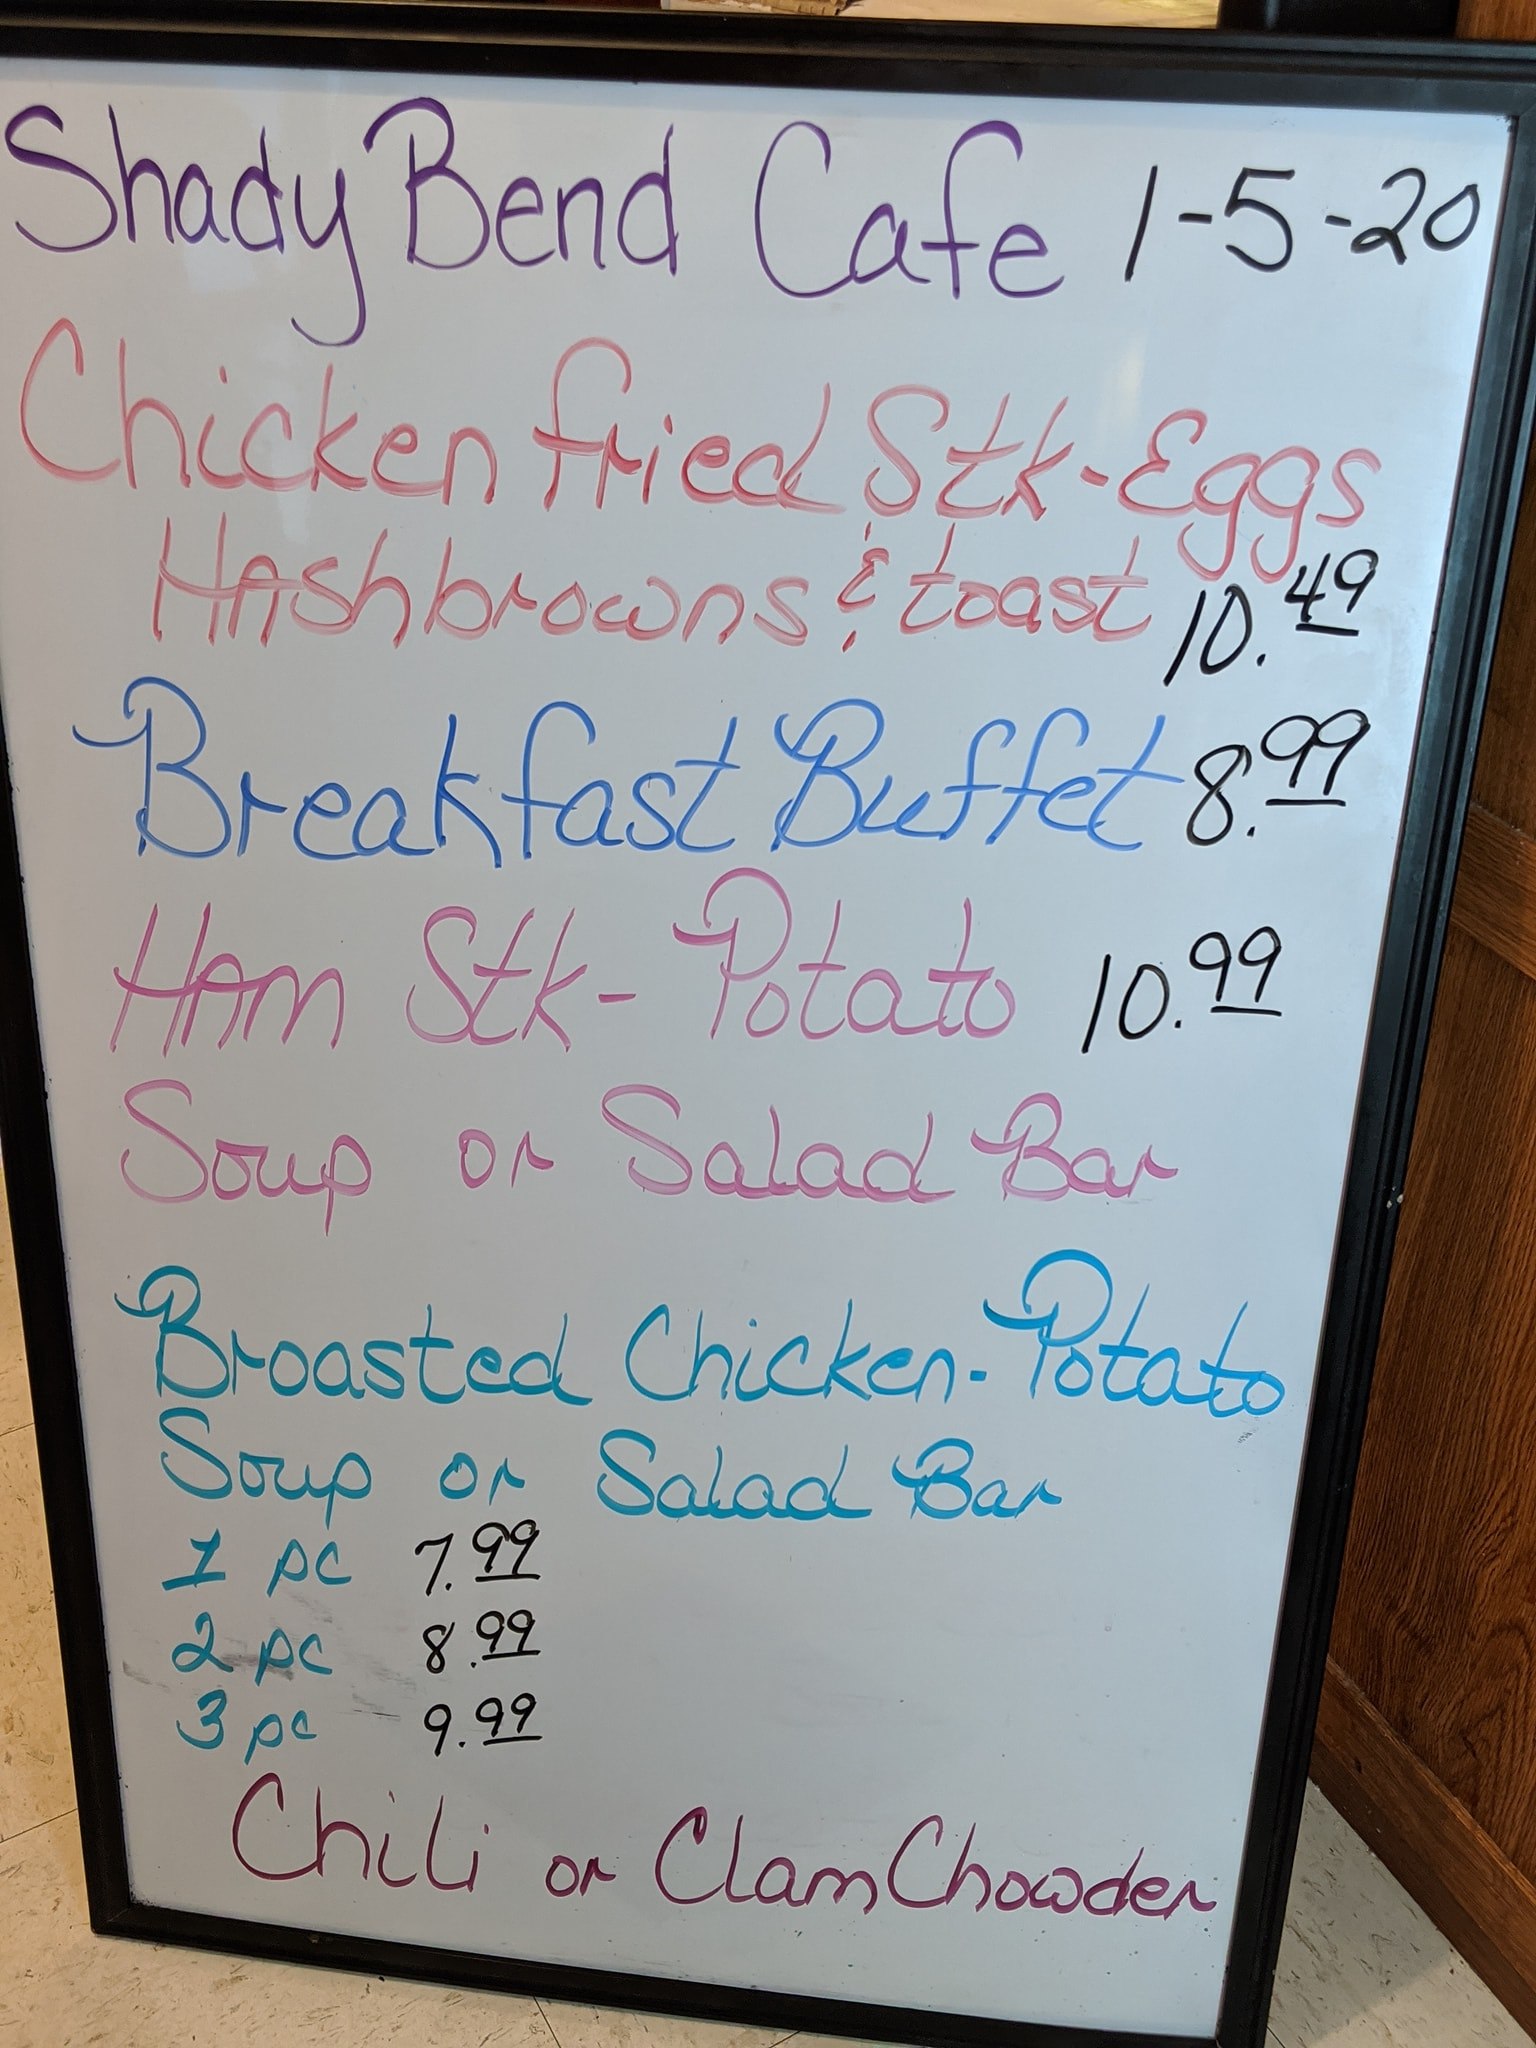 Shady Bend Cafe 1-5-20
Chicken fried Stk-Eggs
HAshbrowns & toast 10.49
Breakfast Buffet 8.99
HAm Stk- Potato 10.99
Soup or Salad Bar
Broasted Chicken-Potato
Soup or Salad Bar
1 pc 7.99
2 pc 8.99
3 pc 9.99
Chili or Clam Chowder